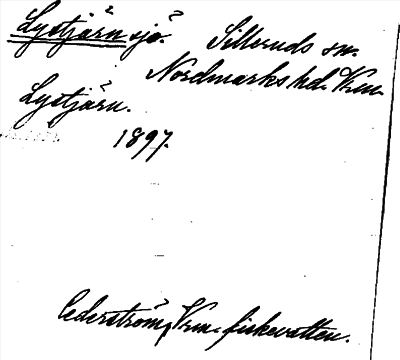 Lystjärn sjö. Silleruds sn.
Nordmarks hd. Vrm.
Lystjärn.
1897.
Cederström, Vrm. fiskevatten.